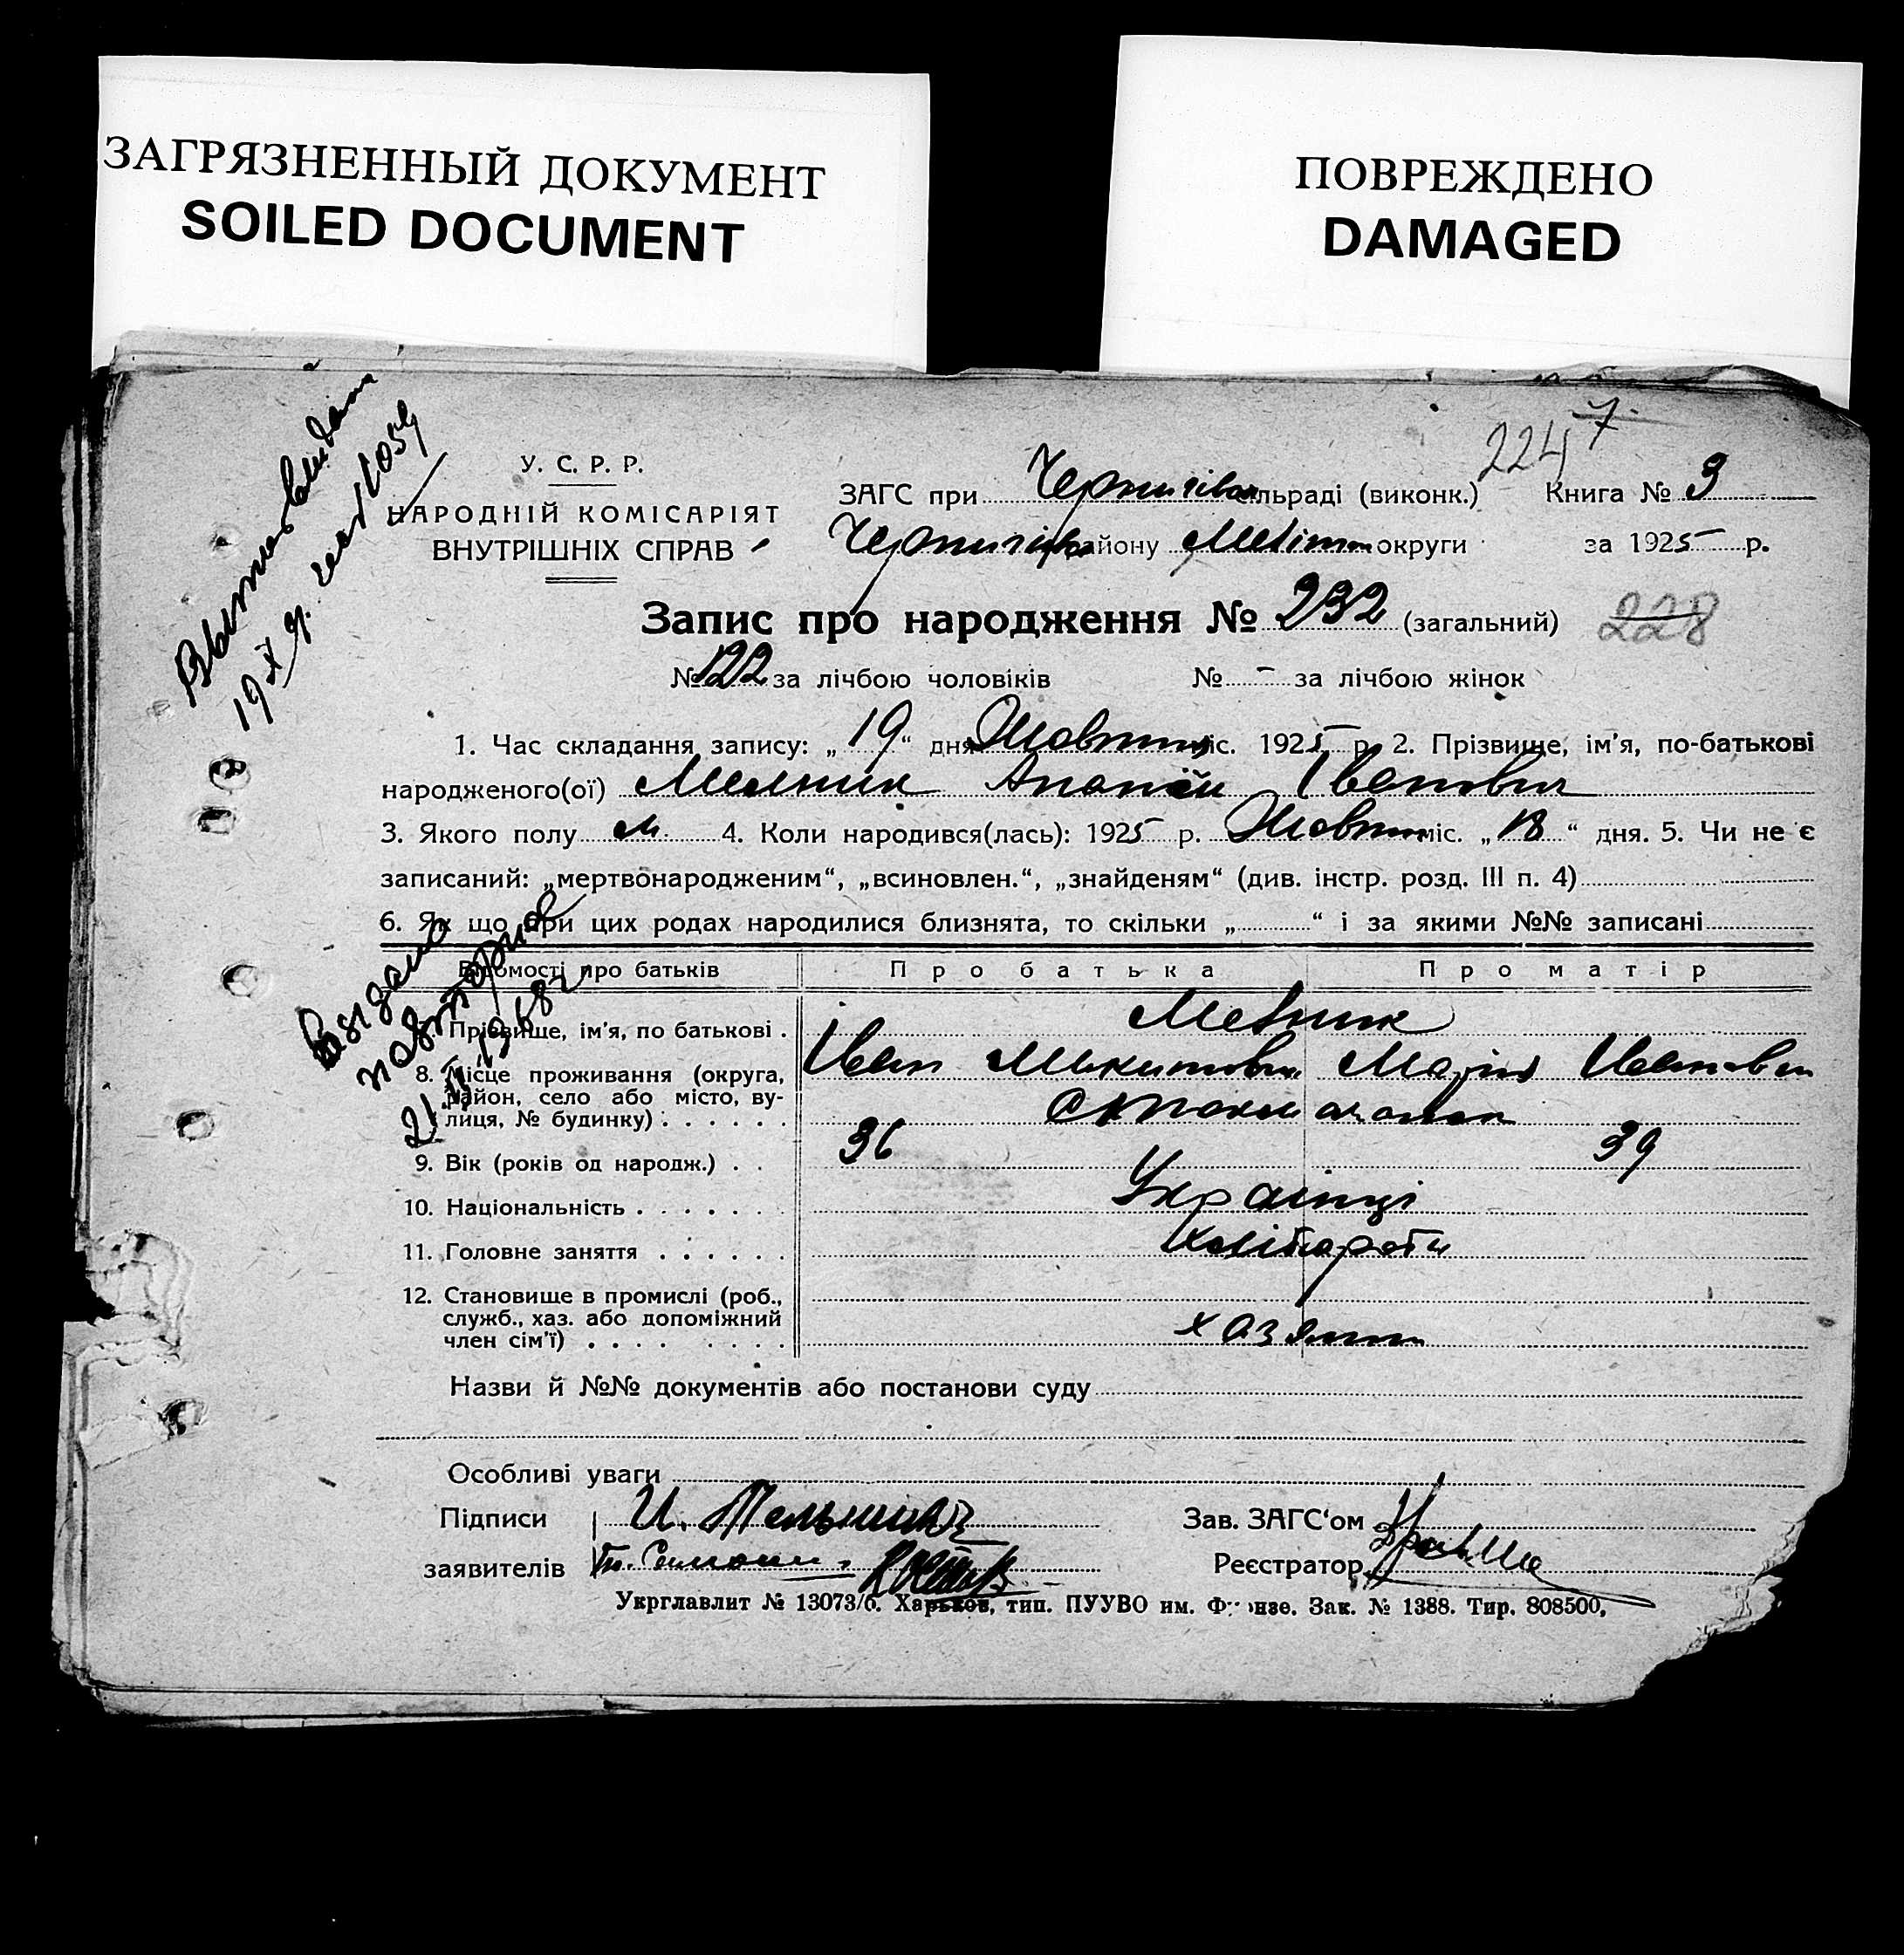 ЗАГРЯЗНЕННЫЙ ДОКУМЕНТ
SOILED DOCUMENT
ПОВРЕЖДЕНО
DAMAGED
2247
У. С. Р. Р.
НАРОДНІЙ КОМІСАРІЯТ
ВНУТРІШНІХ СПРАВ
ЗАГС при Чернигівск льраді (виконк.) Книга № 3
Чернигів району Меліт округи за 1925 р.
Запис про народження № 232 (загальний) 228
№ 122 за лічбою чоловіків № - за лічбою жінок
1. Час складання запису: „19“ дня Жовтня міс. 1925 р. 2. Прізвище, ім'я, по-батькові
народженого(ої) Мелник Ананій Іванович
3. Якого полу м. 4. Коли народився(лась): 1925 р. Жовтня міс. „18“ дня. 5. Чи не є
записаний: „мертвонародженим“, „всиновлен.“, „знайденям“ (див. інстр. розд. III п. 4)
6. Як що при цих родах народилися близнята, то скільки „ “ і за якими №№ записані
Відомості про батьків Про батька Про матір
Прізвище, ім'я, по батькові . Мелник
Иван Микитович Мария Ивановн
8. Місце проживання (округа,
район, село або місто, ву-
лиця, № будинку)
9. Вік (років од народж.) . . 36 39
10. Національність Українці
11. Головне заняття Хлібороби
12. Становище в промислі (роб.,
служб., хаз. або допоміжний
член сім'ї) хазяини
Назви й №№ документів або постанови суду
Особливі уваги
Підписи И. Мельник Зав. ЗАГС'ом
заявителів Реєстратор
Укрглавлит № 13073/б. Харьков, тип. ПУУВО им. Фрунзе. Зак. № 1388. Тир. 808500,
Видано
повторное
21 1968г